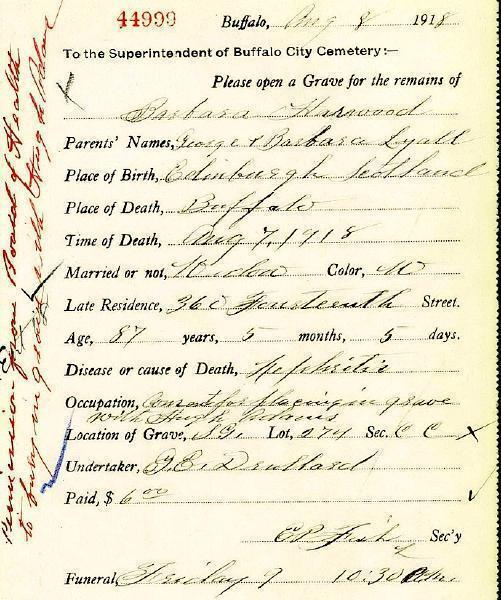 44999 Buffalo, Aug 8 1918
To the Superintendent of Buffalo City Cemetery:—
Please open a Grave for the remains of
Barbara Harwood
Parents' Names, George & Barbara Lyall
Place of Birth, Edinburgh Scotland
Place of Death, Buffalo
Time of Death, Aug 7, 1918
Married or not, Widow Color, W
Late Residence, 360 Fourteenth Street.
Age, 87 years, 5 months, 5 days.
Disease or cause of Death, Nephritis
Occupation, Consent for placing in grave
with Hugh Adams
Location of Grave, S.G. Lot, 274 Sec. C C
Undertaker, Denllard
Paid, $ 6 00
Sec'y
Funeral, Friday 9 10:30 A.m.
Permission from Board of Health
to bury in grave with Hugh Adams